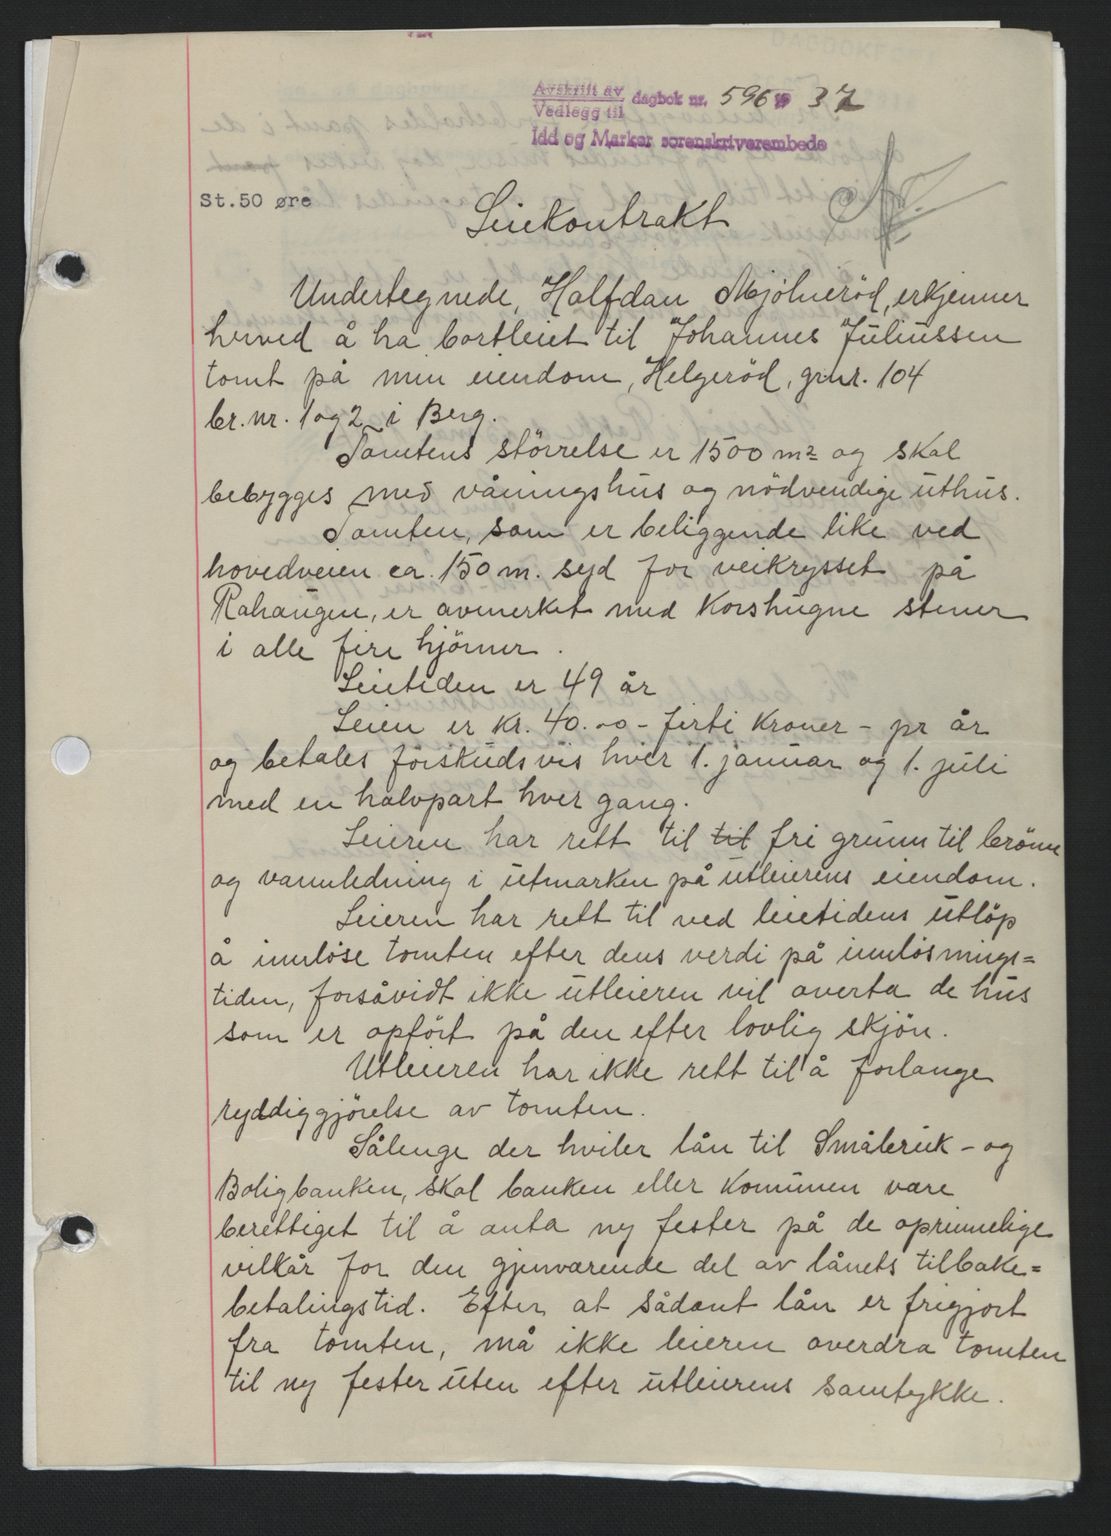 Avskrift av
Vedlegg til
dagbok nr. 596 37
Idd og Marker sorenskriverembede
St.50 øre
Leiekontrakt
Undertegnede, Halfdan Mjölneröd, erkjenner
herved å ha bortleiet til Johannes Juliussen
tomt på min eiendom, Helgeröd, grnr. 104
br. nr. 1 og 2 i Berg.
Tomtens störrelse er 1500 m² og skal
bebygges med våningshus og nödvendige uthus.
Tomten, som er beliggende like ved
hovedveien ca. 150 m. syd for veikrysset på
Rahaugen, er avmerket med korshugne stener
i alle fire hjörner.
Leietiden er 49 år
Leien er kr. 40.00 - firti kroner - pr år
og betales förskudsvis hver 1. januar og 1. juli
med en halvpart hver gang.
Leieren har rett til til fri grunn til brönn
og vannledning i utmarken på utleierens eiendom.
Leieren har rett til ved leietidens utlöp
å innlöse tomten efter dens verdi på innlösnings=
tiden, forsåvidt ikke utleieren vil overta de hus
som er opfört på den efter lovlig skjön.
Utleieren har ikke rett til å forlange
ryddiggjörelse av tomten.
Sålenge der hviler lån til Småbruk - og
Boligbanken, skal banken eller kommunen være
berettiget til å anta ny fester på de oprinnelige
vilkår for den gjenværende del av lånets tilbake=
betalingstid. Efter at sådant lån er frigjort
fra tomten, må ikke leieren overdra tomten
til ny fester uten efter utleierens samtykke.